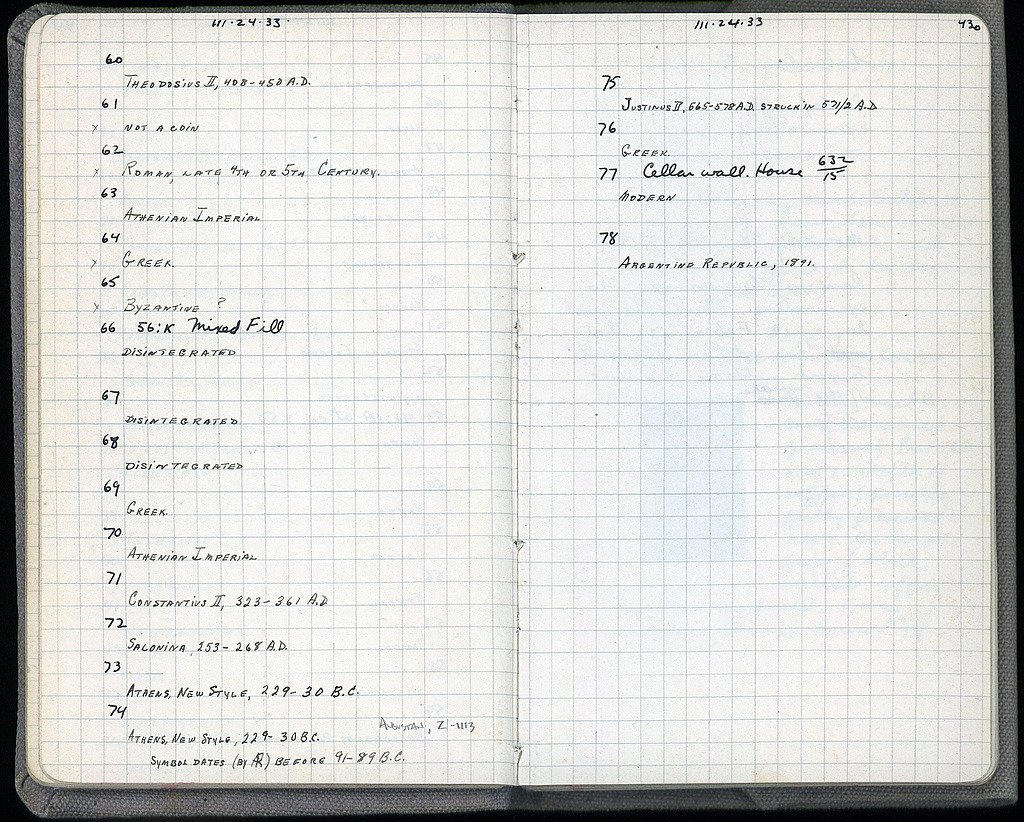 III·24·33
60
THEODOSIUS II, 408-450 A.D.
61
x NOT A COIN
62
x ROMAN, LATE 4TH OR 5TH CENTURY.
63
ATHENIAN IMPERIAL
64
x GREEK.
65
x BYZANTINE ?
66 56:K Mixed Fill
DISINTEGRATED
67
DISINTEGRATED
68
DISINTEGRATED
69
GREEK.
70
ATHENIAN IMPERIAL
71
CONSTANTIUS II, 323-361 A.D.
72
SALONINA, 253-268 A.D.
73
ATHENS, NEW STYLE, 229-30 B.C.
74
AUGUSTAN, Z-1113
ATHENS, NEW STYLE, 229-30 B.C.
SYMBOL DATES (BY AR) BEFORE 91-89 B.C.
III·24·33 430
75
JUSTINUS II, 565-578 A.D. STRUCK IN 571/2 A.D.
76
GREEK.
77 Cellar wall. House 632/15
MODERN
78
ARGENTINO REPVBLIC, 1891.